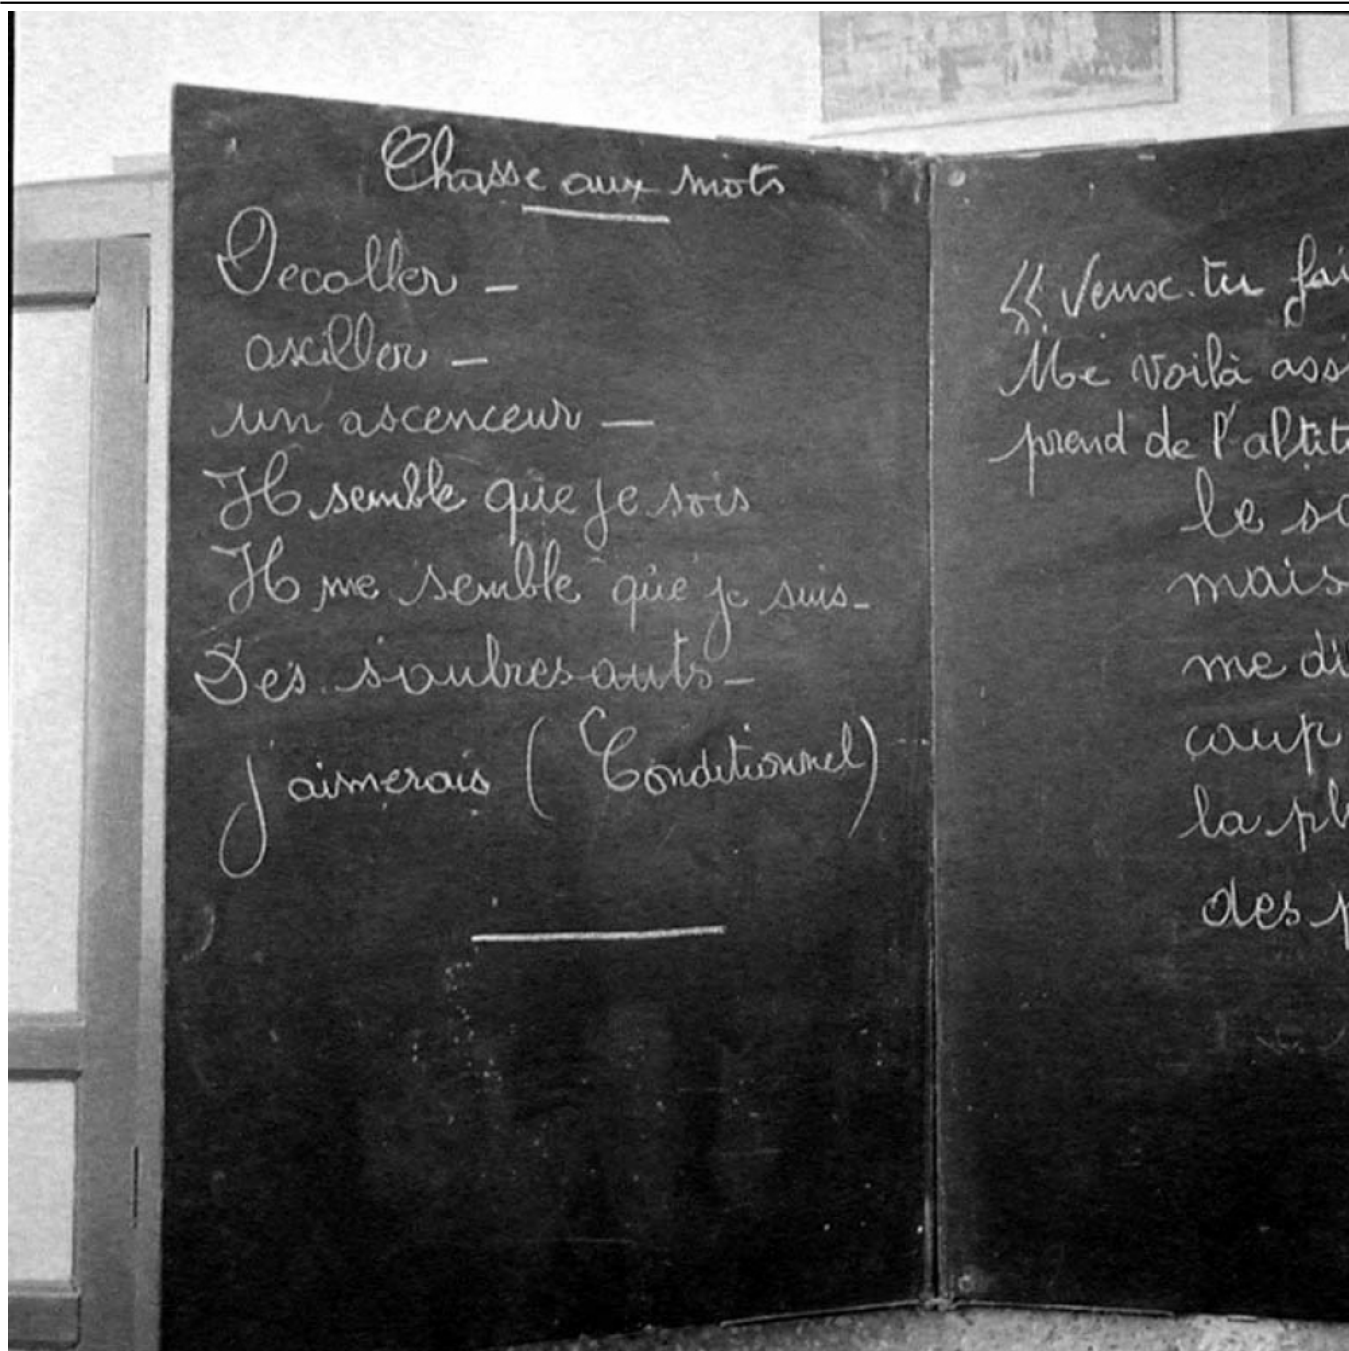 Chasse aux mots
Decoller –
osciller –
un ascenceur –
Il semble que je sois
Il me semble que je suis –
Des soubresauts –
j'aimerais (Conditionnel)
« Veux-tu fai
Me voilà ass
prend de l'altit
le so
mais
me di
coup
la pl
des p